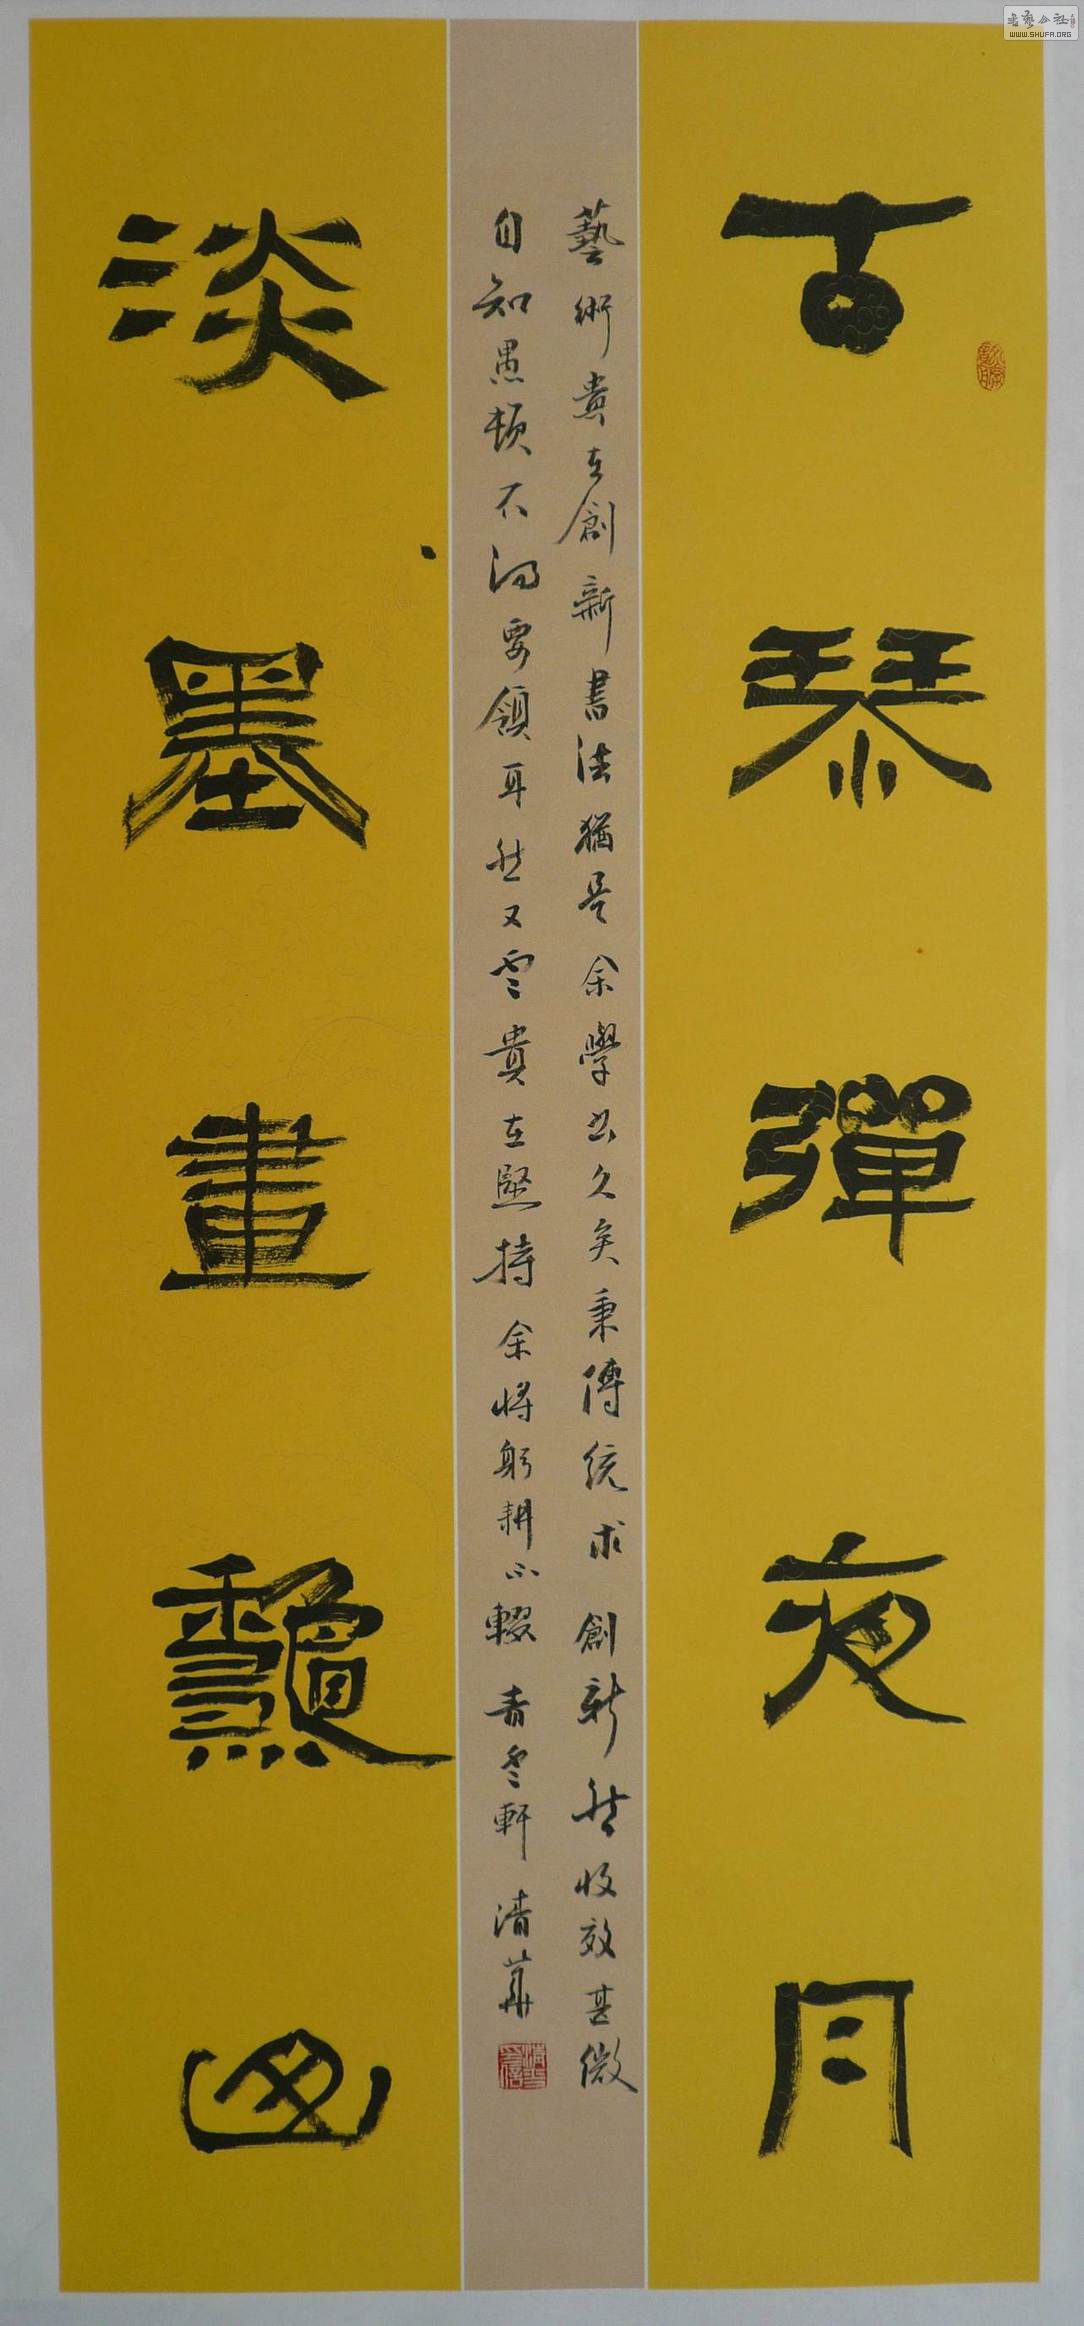 古琴彈夜月
藝術貴在創新書法猶是余學书久矣秉傳統求創新然收效甚微
自知愚頓不得要領耳然又雲貴在堅持余將躬耕不輟 青軒 清華
淡墨畫龝山
书藝公社
WWW.SHUFA.ORG